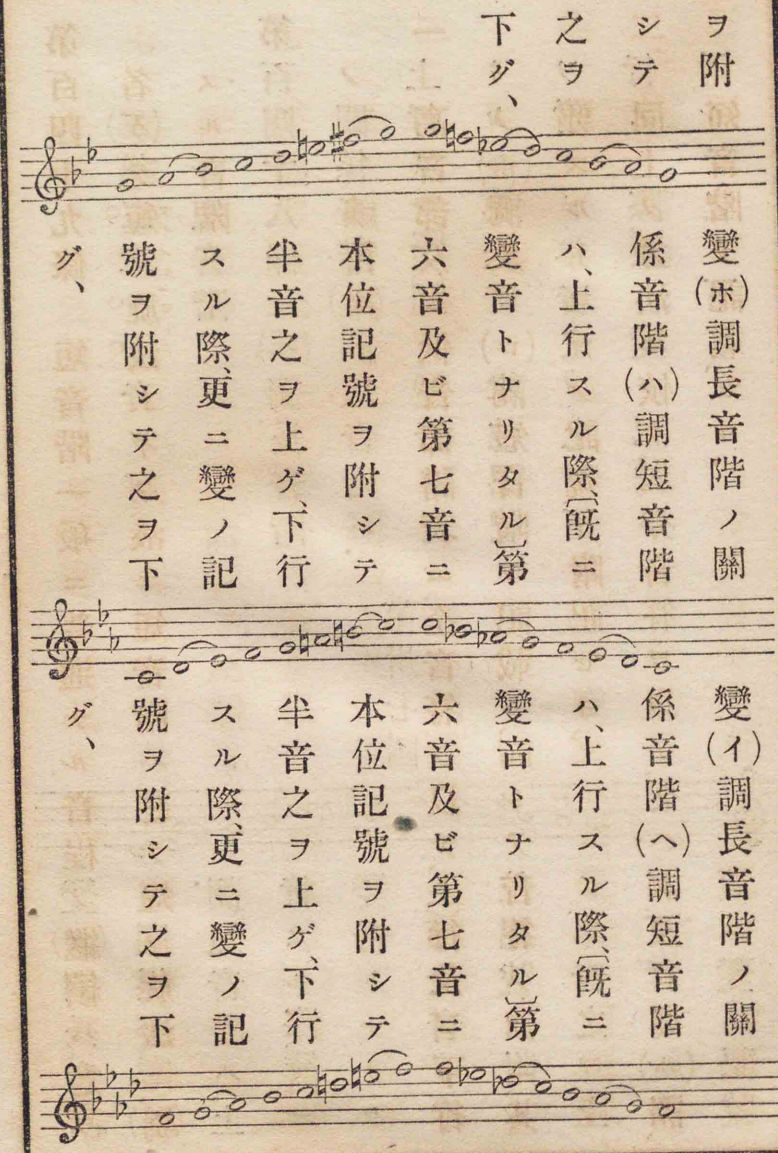 ヲ附
シテ
之ヲ
下グ、
變(ホ)調長音階ノ關
係音階(ハ)調短音階
ハ、上行スル際、〔既ニ
變音トナリタル〕第
六音及ビ第七音ニ
本位記號ヲ附シテ
半音之ヲ上ゲ、下行
スル際、更ニ變ノ記
號ヲ附シテ之ヲ下
グ、
變(イ)調長音階ノ關
係音階(ヘ)調短音階
ハ、上行スル際、〔既ニ
變音トナリタル〕第
六音及ビ第七音ニ
本位記號ヲ附シテ
半音之ヲ上ゲ、下行
スル際、更ニ變ノ記
號ヲ附シテ之ヲ下
グ、